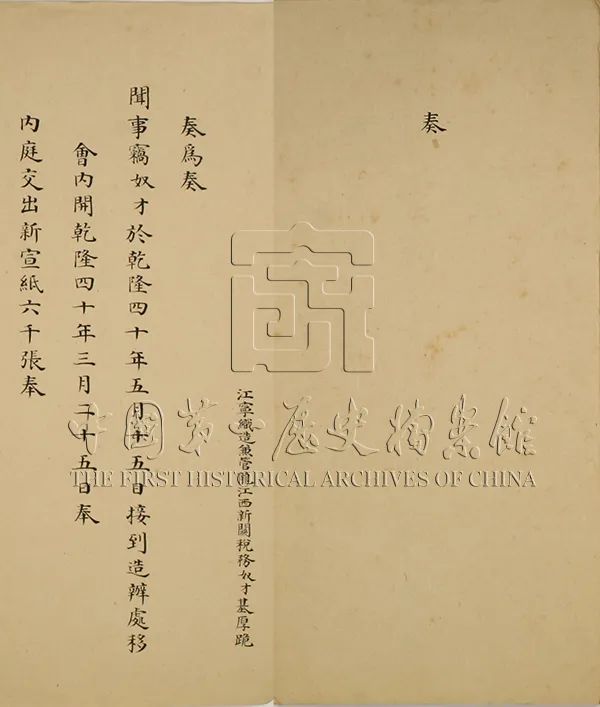 奏
江寧織造兼管龍江西新關稅務奴才基厚跪
奏爲奏
聞事竊奴才於乾隆四十年五月十五日接到造辦處移
會內開乾隆四十年三月二十五日奉
內庭交出新宣紙六千張奉
中國第一歷史檔案館
THE FIRST HISTORICAL ARCHIVES OF CHINA